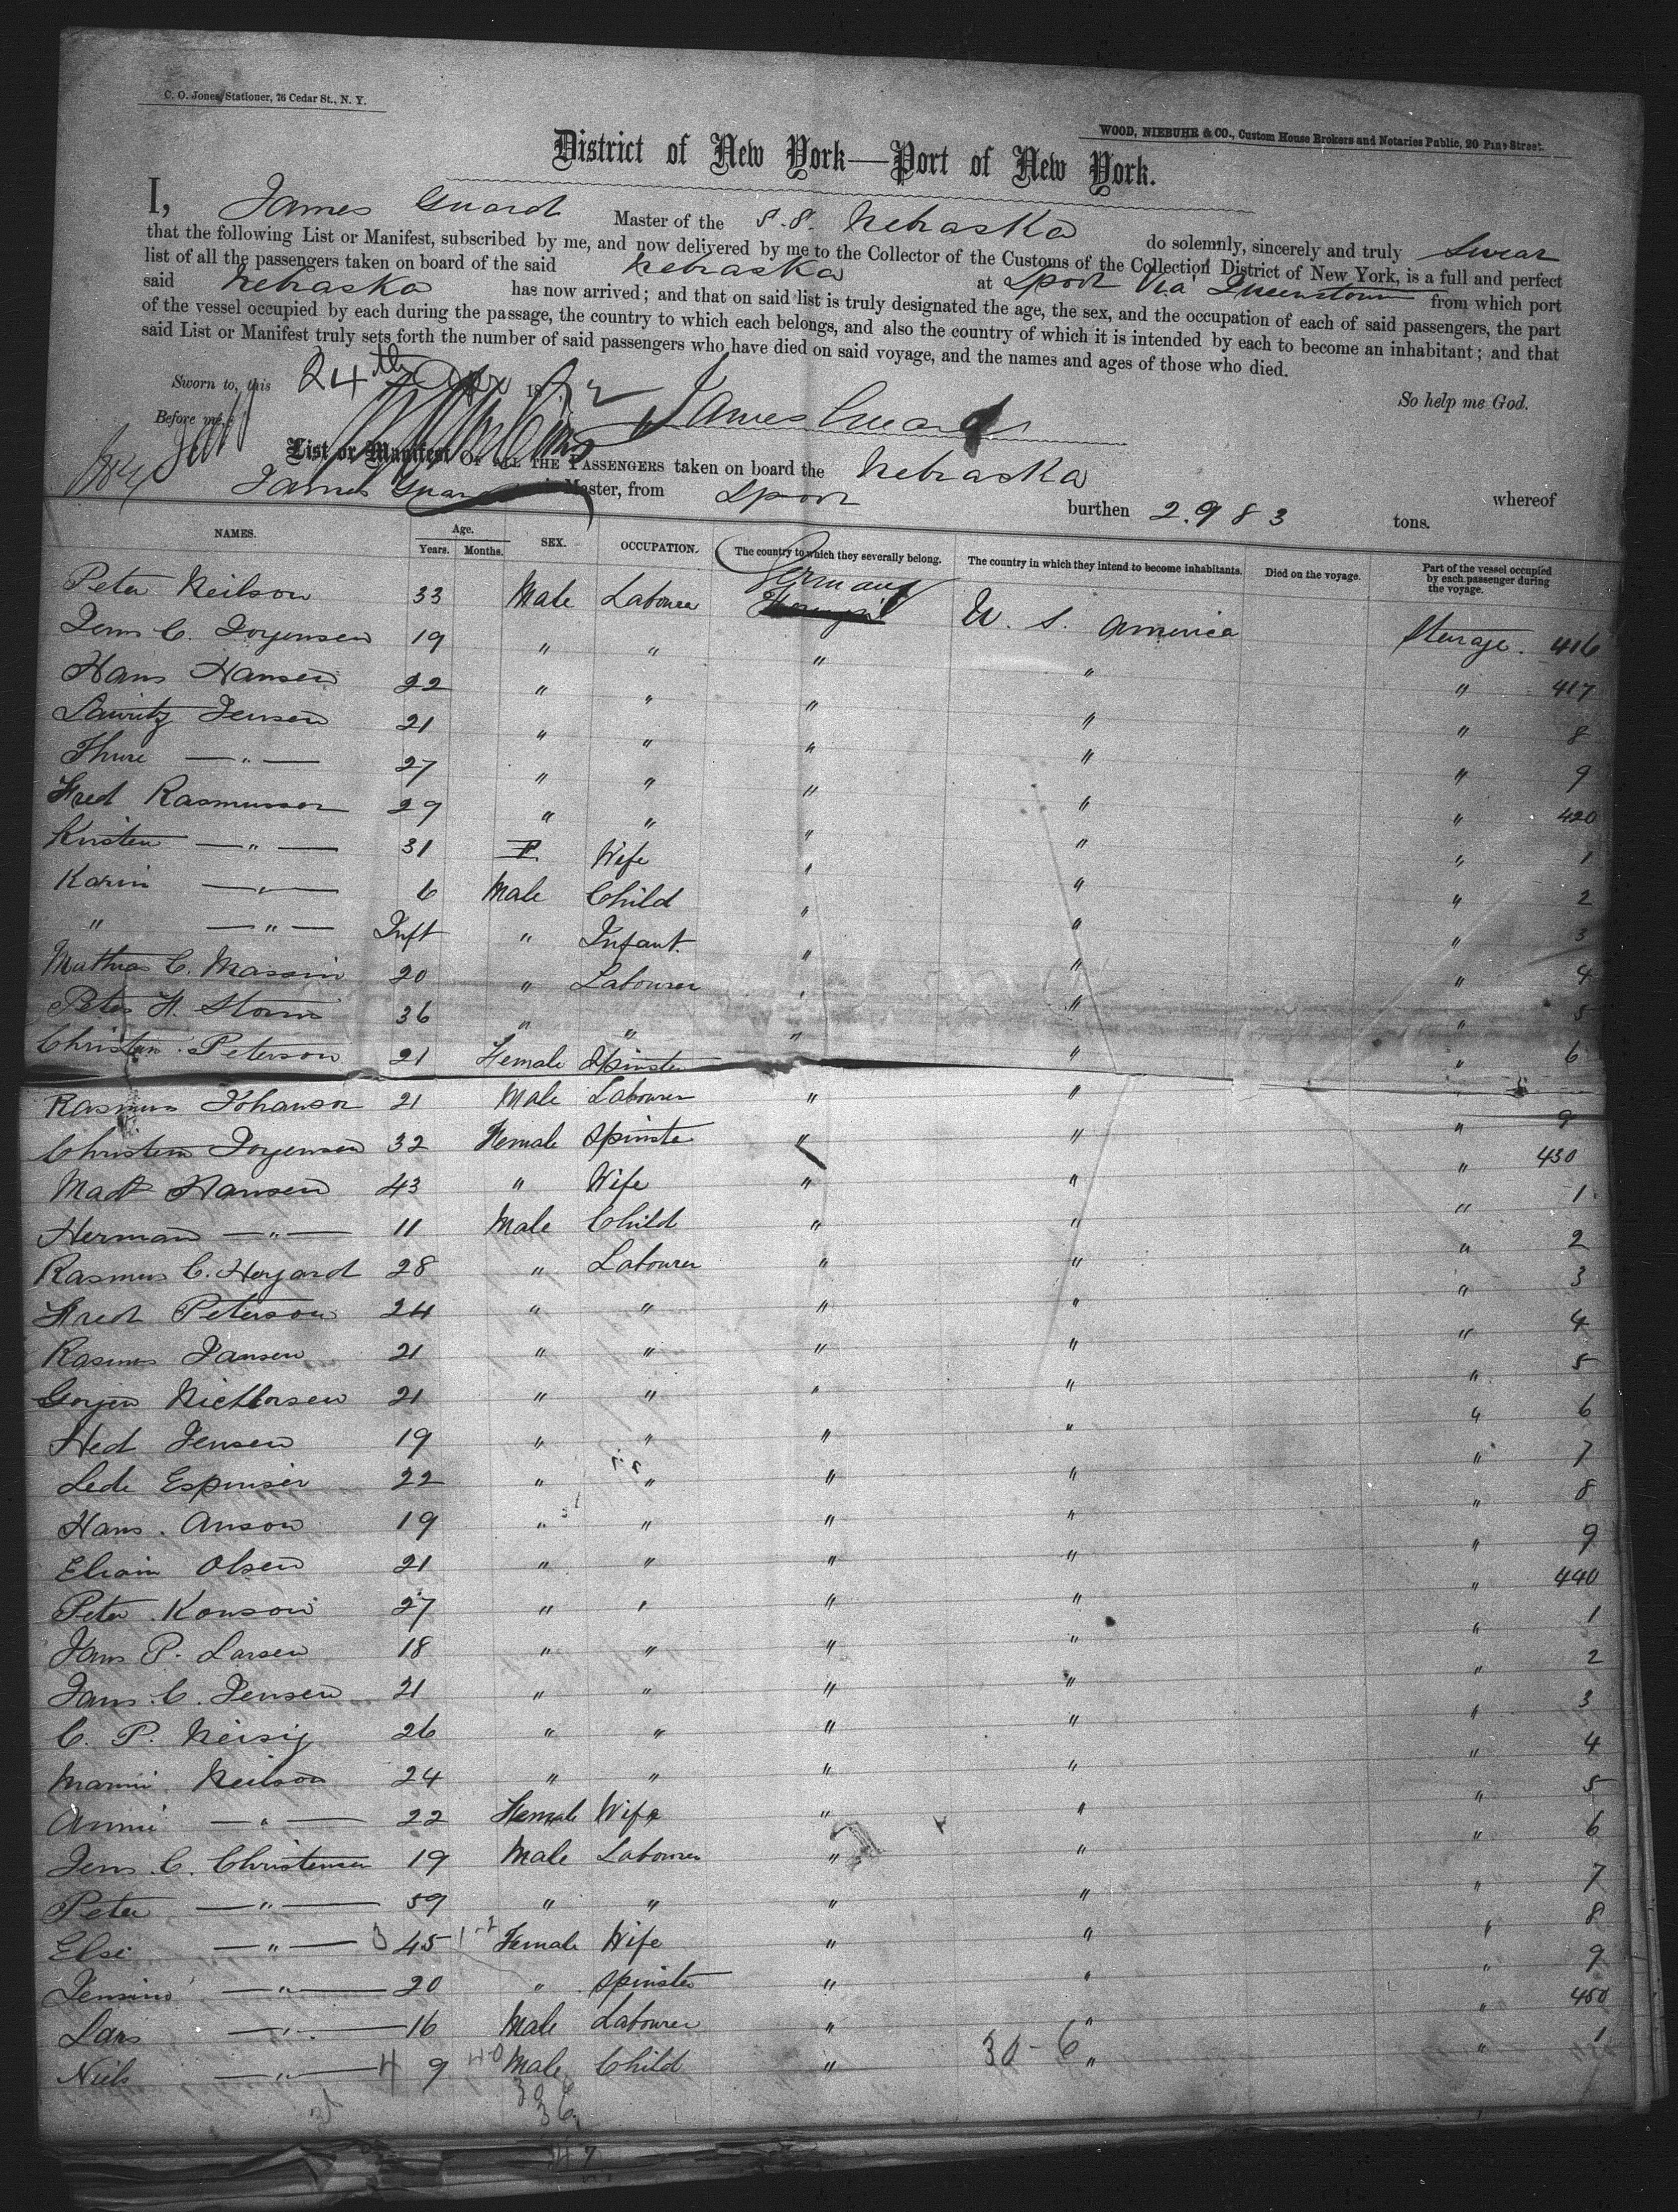 C. O. Jones, Stationer, 76 Cedar St., N. Y.
WOOD, NIEBUHR & CO., Custom House Brokers and Notaries Public, 20 Pine Street.
District of New York—Port of New York.
I, James Guard Master of the S.S. Nebraska do solemnly, sincerely and truly Swear
that the following List or Manifest, subscribed by me, and now delivered by me to the Collector of the Customs of the Collection District of New York, is a full and perfect
list of all the passengers taken on board of the said Nebraska at Lpool Via Queenstown from which port
said Nebraska has now arrived; and that on said list is truly designated the age, the sex, and the occupation of each of said passengers, the part
of the vessel occupied by each during the passage, the country to which each belongs, and also the country of which it is intended by each to become an inhabitant; and that
said List or Manifest truly sets forth the number of said passengers who have died on said voyage, and the names and ages of those who died.
Sworn to, this 24th 1872 So help me God.
Before me, James Guard
List or Manifest OF ALL THE PASSENGERS taken on board the Nebraska whereof
James Guard is Master, from Lpool burthen 2.983 tons.
NAMES. Age. Years. Months. SEX. OCCUPATION. The country to which they severally belong. The country in which they intend to become inhabitants. Died on the voyage. Part of the vessel occupied by each passenger during the voyage.
Peter Neilson 33 Male Labourer Germany U. S. America Steerage. 416
Jens C. Jorgensen 19 " " " " " 417
Hans Hansen 22 " " " " " 8
Lauritz Jensen 21 " " " " " 9
Thure —"— 27 " " " " " 420
Fred Rasmussen 29 " " " " " 1
Kirsten —"— 31 F Wife " " " 2
Karin —"— 6 Male Child " " " 3
" —"— Inft " Infant. " " " 4
Mathias C. Massin 20 " Labourer " " " 5
Peter H. Storm 36 " " " " " 6
Christian Peterson 21 Female Spinster " " "
Rasmus Johanson 21 Male Labourer " " " 9
Christena Jorgensen 32 Female Spinster " " " 430
Mad Hansen 43 " Wife " " " 1
Herman —"— 11 Male Child " " " 2
Rasmus C. Hoyard 28 " Labourer " " " 3
Fred Peterson 24 " " " " " 4
Rasmus Jansen 21 " " " " " 5
Gorjen Nichlorsen 21 " " " " " 6
Hed Jensen 19 " " " " " 7
Lede Espinsen 22 " " " " " 8
Hans Anson 19 " " " " " 9
Olsen 21 " " " " " 440
Peter Konson 27 " " " " " 1
Jans P. Larsen 18 " " " " " 2
Jans C. Jensen 21 " " " " " 3
C. P. Neisig 26 " " " " " 4
Marini Neilson 24 " " " " " 5
Anni —"— 22 Female Wife " " " 6
Jens C. Christensen 19 Male Labourer " " " 7
Peter —"— 59 " " " " " 8
Else —"— 45 Female Wife " " " 9
Jensine —"— 20 " Spinster " " " 450
Lars —"— 16 Male Labourer " " " 1
Niels —"— 9 Male Child " 30-6 "